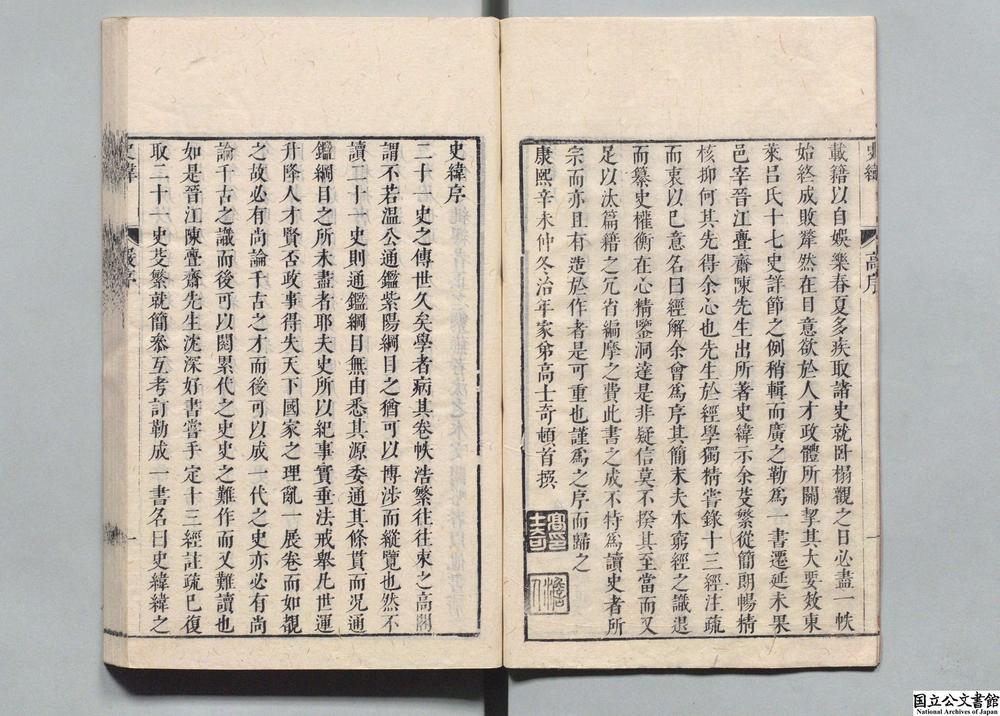 載籍以自娛樂春夏多疾取諸史就臥榻觀之日必盡一帙
始終成敗犖然在目意欲於人才政體所關挈其大要效東
萊呂氏十七史詳節之例稍輯而廣之勒爲一書遷延未果
邑宰晉江亹齋陳先生出所著史緯示余芟繁從簡朗暢精
核抑何其先得余心也先生於經學獨精嘗錄十三經注疏
而衷以己意名曰經解余曾爲序其簡末夫本窮經之識退
而纂史權衡在心精鑒洞達是非疑信莫不揆其至當而又
足以汰篇籍之冗省編摩之費此書之成不特爲讀史者所
宗而亦且有造於作者是可重也謹爲之序而歸之
康熙辛未仲冬治年家弟高士奇頓首撰
高士奇印
史緯
高序
一
史緯序
二十一史之傳世久矣學者病其卷帙浩繁往往束之高閣
謂不若溫公通鑑紫陽綱目之猶可以博涉而縱覽也然不
讀二十一史則通鑑綱目無由悉其源委通其條貫而况通
鑑綱目之所未盡者耶夫史所以紀事實垂法戒舉凡世運
升降人才賢否政事得失天下國家之理亂一展卷而如覩
之故必有尚論千古之才而後可以成一代之史亦必有尚
論千古之識而後可以閱累代之史史之難作而又難讀也
如是晉江陳亹齋先生沈深好書嘗手定十三經註疏巳復
取二十一史芟繁就簡叅互考訂勒成一書名曰史緯緯之
史緯
序
一
国立公文書館
National Archives of Japan